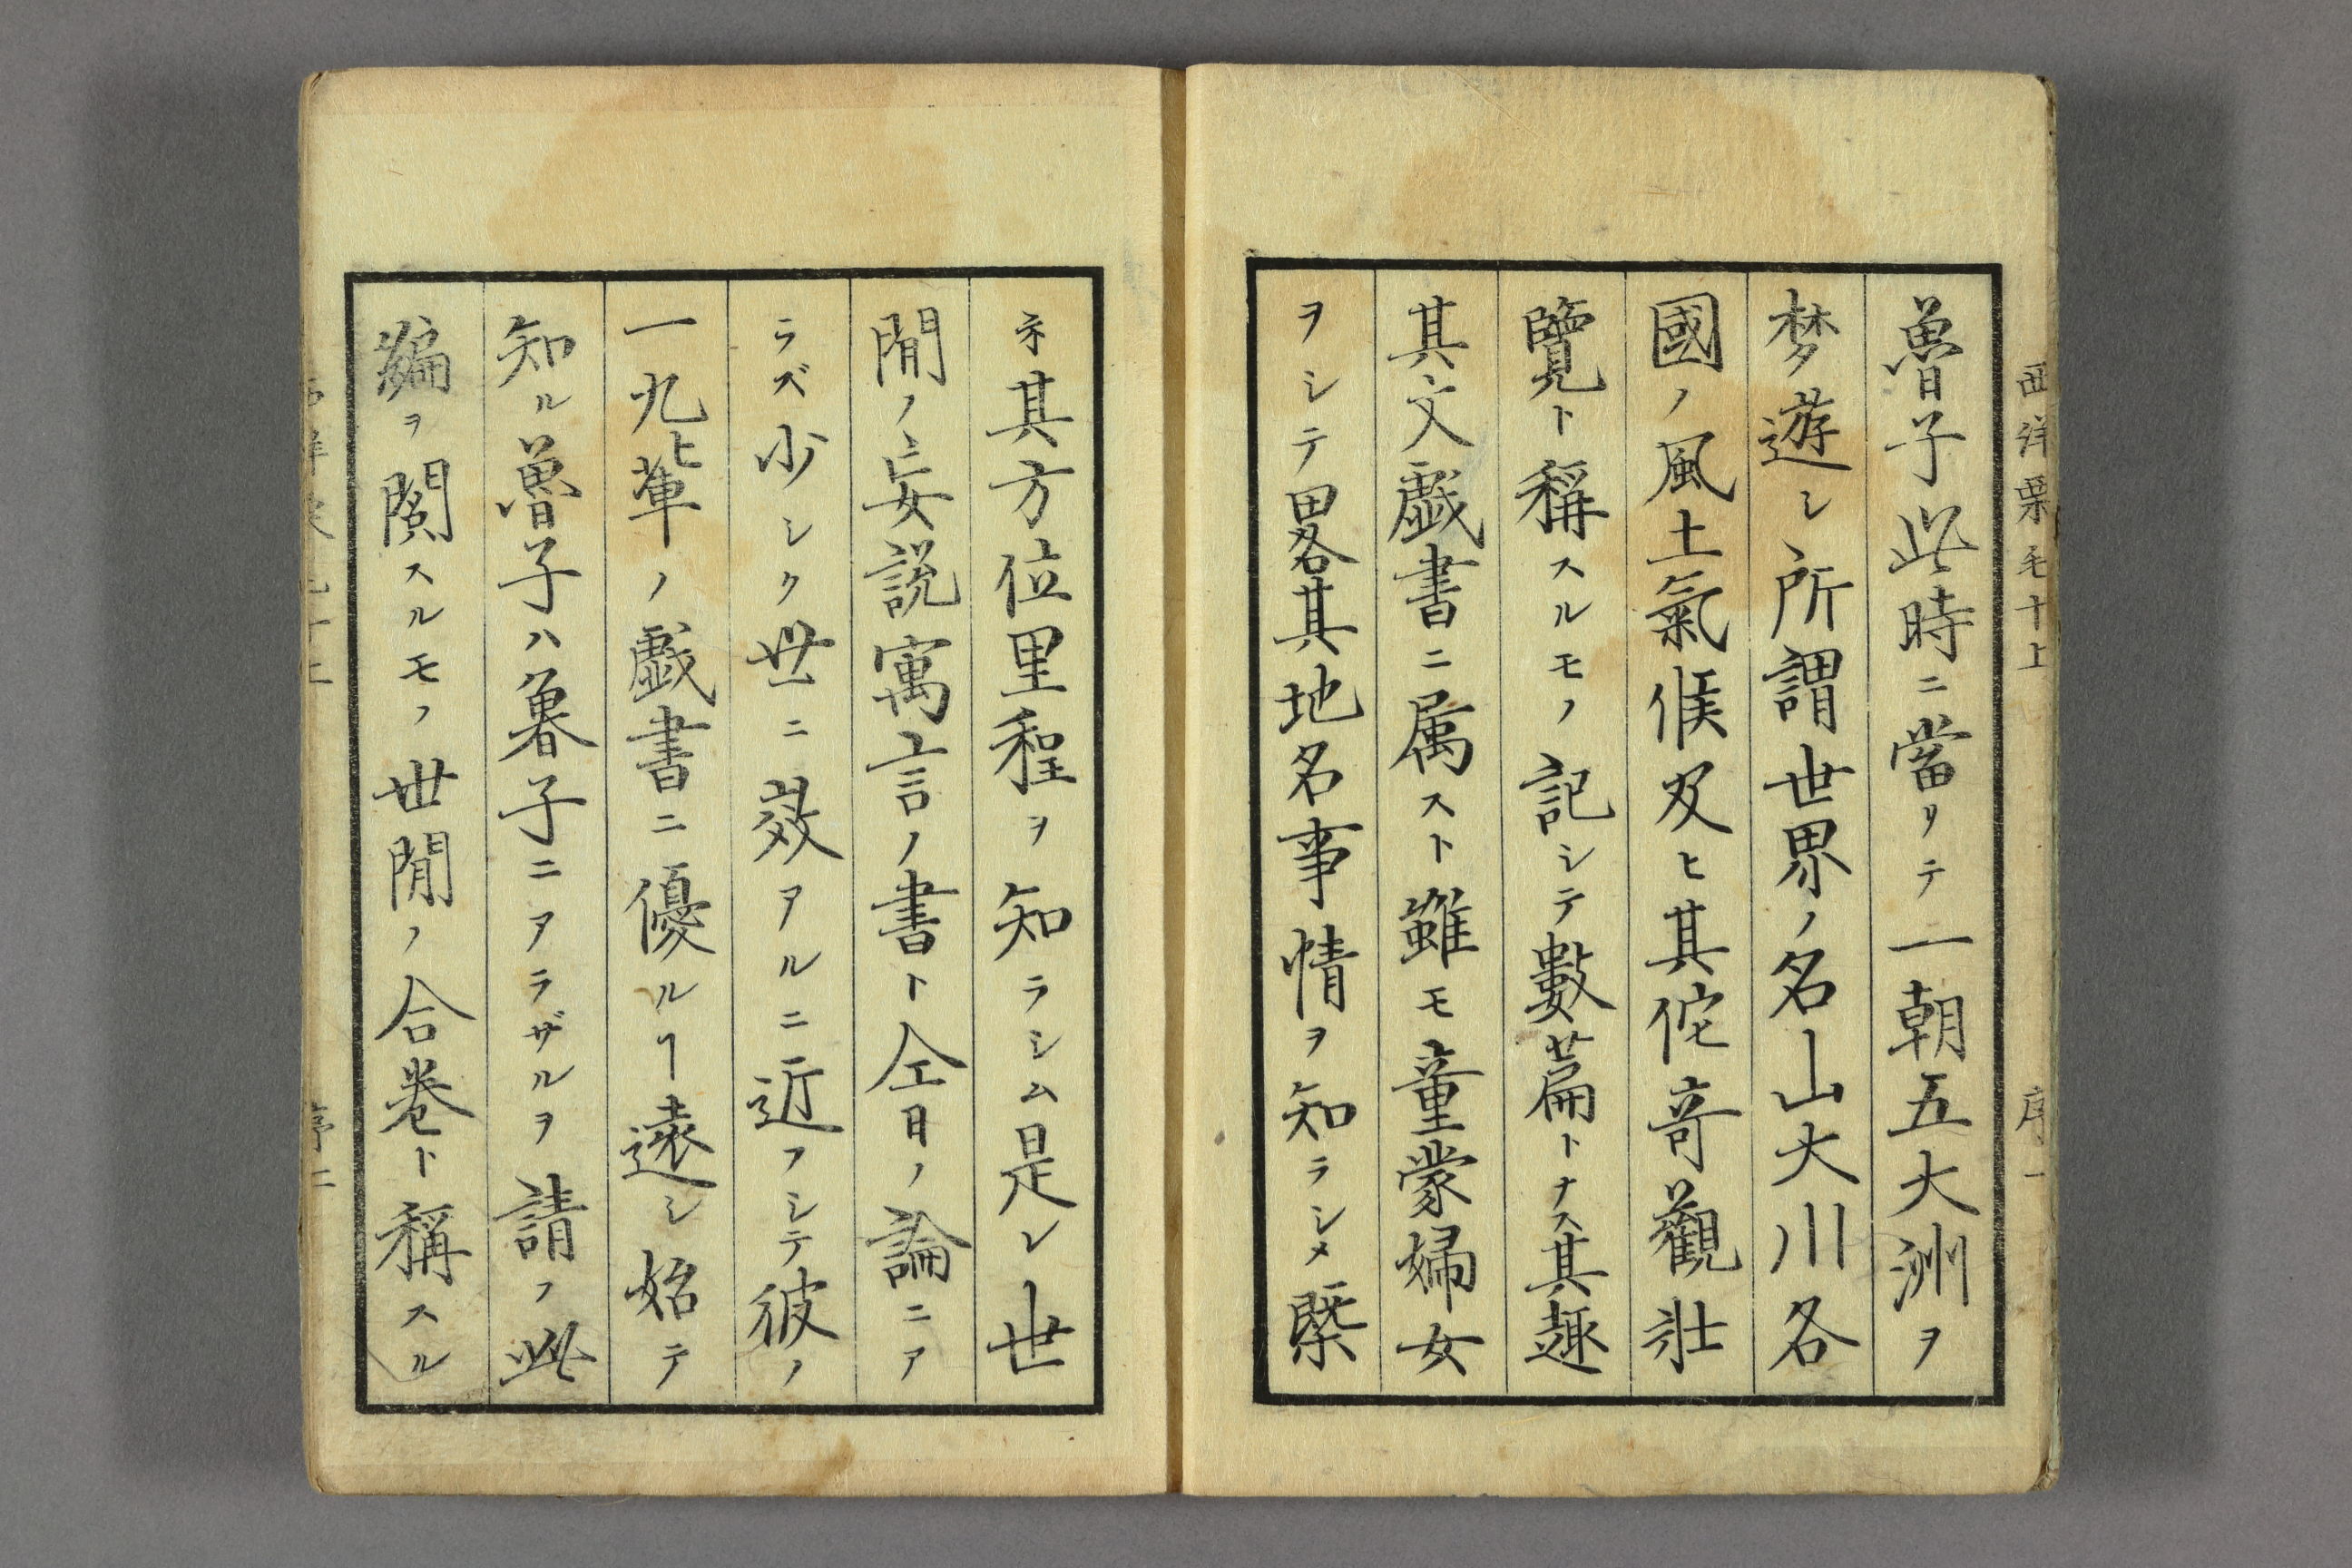 西洋栗毛十上　序一
魯子此時ニ當リテ一朝五大洲ヲ
梦遊シ所謂世界ノ名山大川各
國ノ風土氣候及ヒ其佗竒觀壯
覽ト稱スルモノ記シテ數篇トナス其趣
其文戯書ニ属スト雖モ童蒙婦女
ヲシテ畧其地名事情ヲ知ラシメ槩
子其方位里程ヲ知ラシム是レ世
間ノ妄説寓言ノ書ト仝日ノ論ニア
ラズ少シク世ニ效アルニ近フシテ彼ノ
一九輩ノ戯書ニ優ルヿ遠シ始テ
知ル魯子ハ魯子ニアラザルヲ請フ此
編ヲ閲スルモノ世間ノ合巻ト稱スル
序二